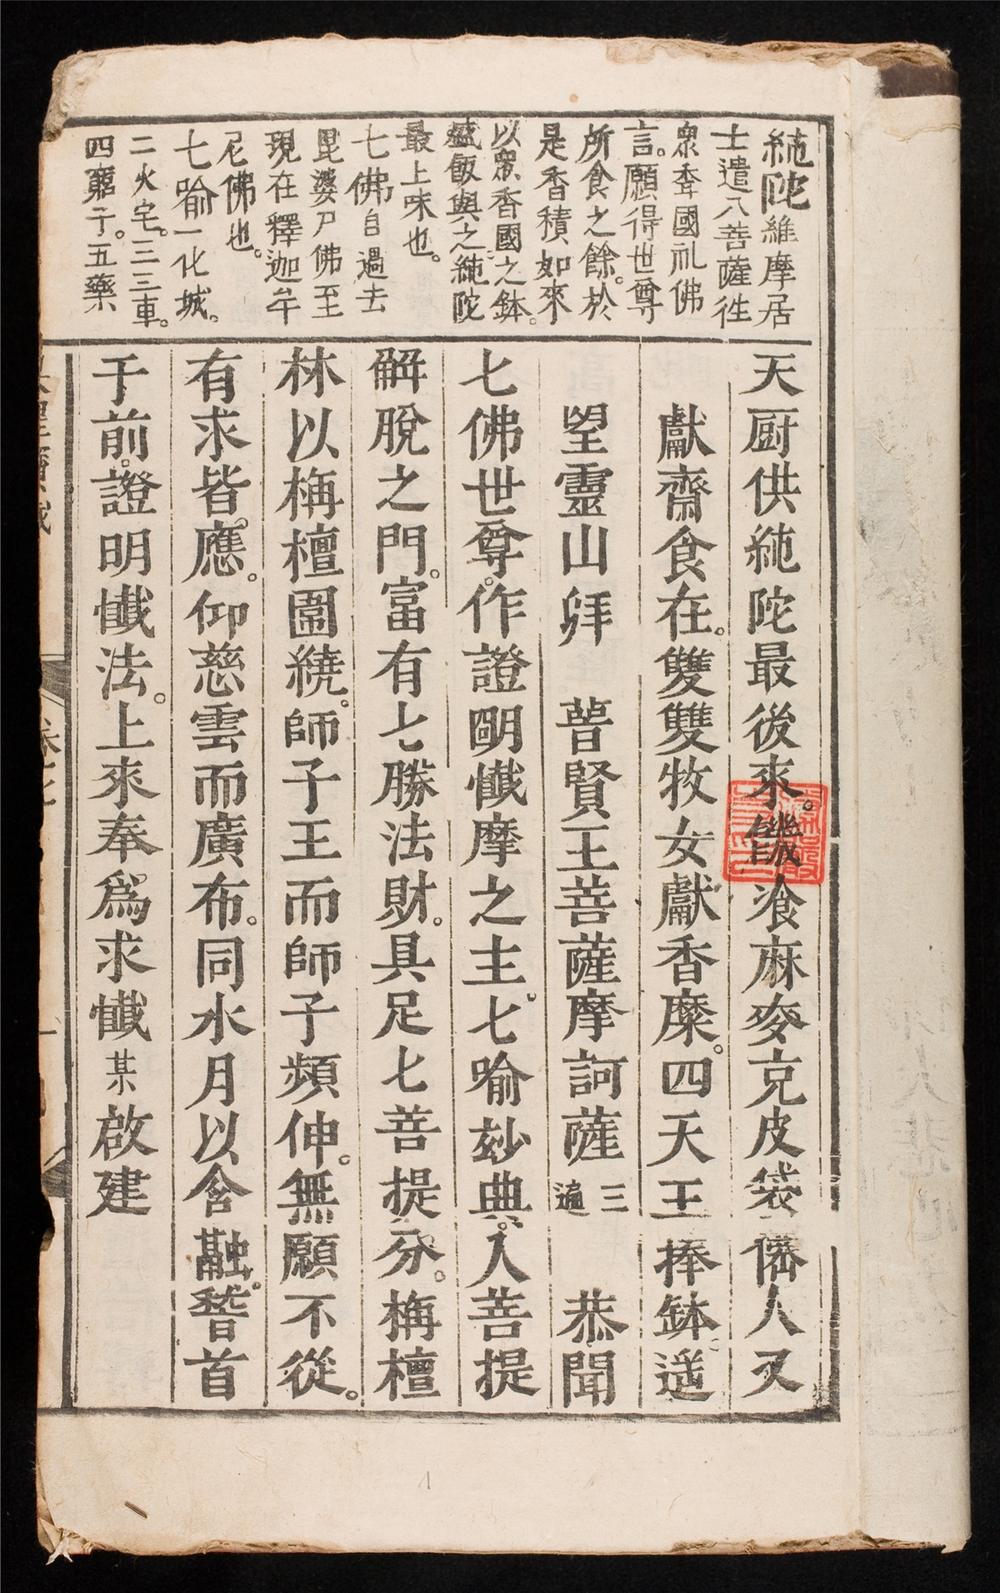 純陀維摩居
士遣八菩薩徃
衆香國礼佛
言願得世尊
所食之餘於
是香積如來
以衆香國之鉢
盛飯與之純陀
最上味也
七佛自過去
毘婆尸佛至
現在釋迦牟
尼佛也
七喻一化城
二火宅三三車
四窮子五藥
天厨供純陀最後來饑飡麻麥克皮袋僊人又
獻齋食在雙雙牧女獻香糜四天王捧鉢送
望靈山拜 普賢王菩薩摩訶薩三遍 恭聞
七佛世尊作證明懺摩之主七喻玅典入菩提
解脫之門富有七勝法財具足七菩提分栴檀
林以栴檀圍繞師子王而師子頻伸無願不從
有求皆應仰慈雲而廣布同水月以含融稽首
于前證明懺法上來奉爲求懺某啟建